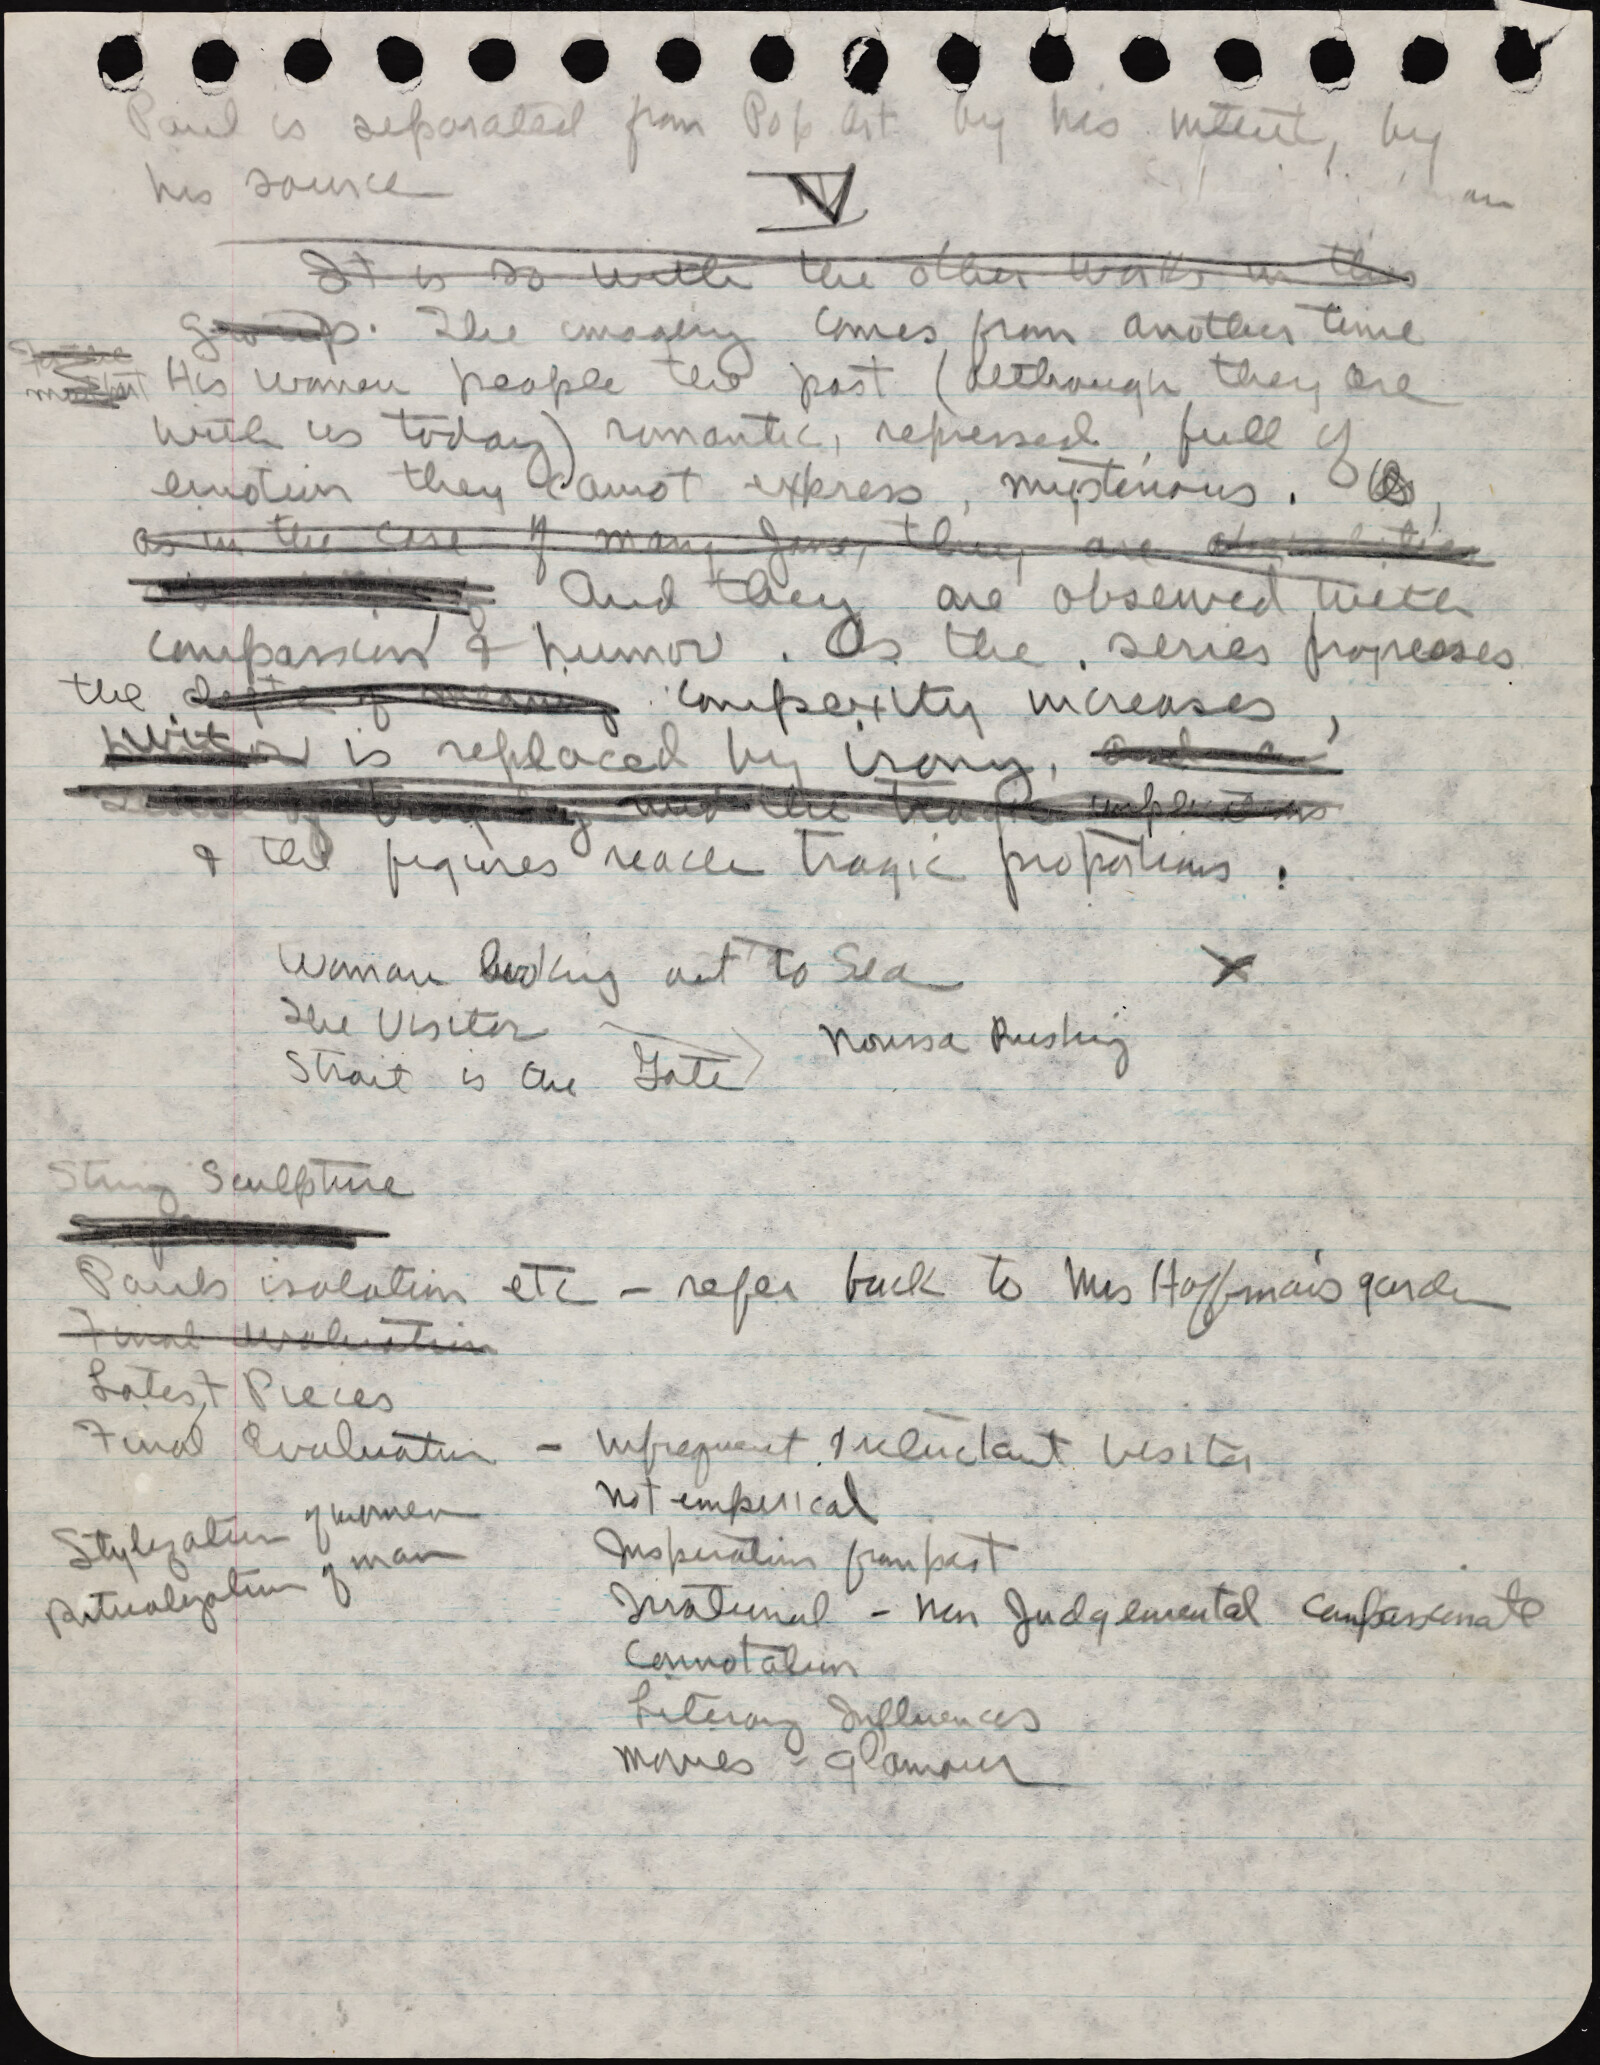 Paul is separated from Pop Art by his intent, by
his source
IV
It is so with the other works in this
group. The imagery comes from another time
His women people the past (although they are
with us today) romantic, repressed, full of
emotion they cannot express, mysterious.
as in the case of many Janes, they are
And they are observed with
compassion & humor. As the series progresses
the depth of meaning compexity increases,
wit is replaced by irony, and a
sense of tragedy and the tragic implications
& the figures reach tragic proportions.
Woman looking out to Sea X
The Visitor
Norissa Rushing
Strait is the Gate
String Sculpture
Pauls isolation etc – refer back to Mrs Hoffman's garden
Final evaluation
Latest Pieces
Final Evaluation – infrequent & reluctant visitor
Not emperical
Stylization of women
Inspiration from past
Ritualization of man
Irrational – non Judgemental compassionate
Connotation
Literary Influences
Movies – glamour